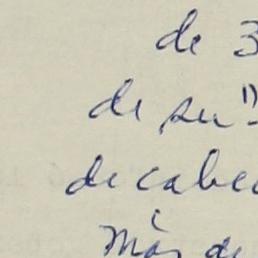 de 3
de su "
de cabe
Más de